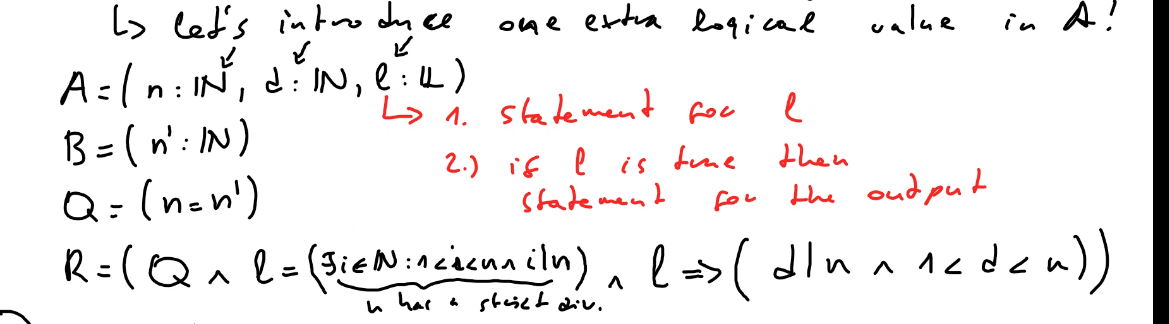 ↳ Let's introduce one extra logical value in A!
A = ( n : ℕ, d : ℕ, l : 𝕃 )
↳ 1. statement for l
B = ( n' : ℕ )
2.) if l is true then
statement for the output
Q = ( n = n' )
R = ( Q ∧ l = (∃i∈ℕ : 1<i<n ∧ i|n) ∧ l => ( d|n ∧ 1 < d < n ))
n has a strict div.